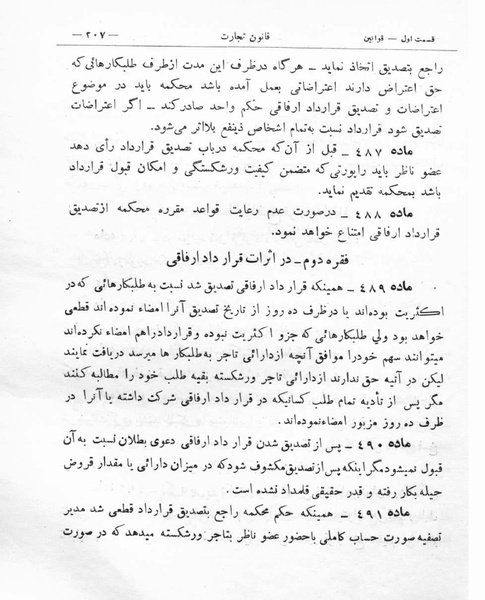 قسمت اول — قوانین
قانون تجارت
— ۲۰۷ —
راجع بتصدیق اتخاذ نماید — هرگاه درظرف این مدت ازطرف طلبکارهائی که
حق اعتراض دارند اعتراضاتی بعمل آمده باشد محکمه باید در موضوع
اعتراضات و تصدیق قرارداد ارفاقی حکم واحد صادرکند — اگر اعتراضات
تصدیق شود قرارداد نسبت به‌تمام اشخاص ذینفع بلااثر می‌شود.
ماده ۴۸۷ — قبل از آن‌که محکمه درباب تصدیق قرارداد رأی دهد
عضو ناظر باید راپورتی که متضمن کیفیت ورشکستگی و امکان قبول قرارداد
باشد بمحکمه تقدیم نماید.
ماده ۴۸۸ — درصورت عدم رعایت قواعد مقرره محکمه ازتصدیق
قرارداد ارفاقی امتناع خواهد نمود.
فقره دوم — در اثرات قرار داد ارفاقی
ماده ۴۸۹ — همینکه قرار داد ارفاقی تصدیق شد نسبت به طلبکارهائی که در
اکثریت بوده‌اند یا درظرف ده روز از تاریخ تصدیق آنرا امضاء نموده‌اند قطعی
خواهد بود ولی طلبکارهائی که جزو اکثریت نبوده وقراردادراهم امضاء نکرده‌اند
میتوانند سهم خودرا موافق آنچه ازدارائی تاجر به‌طلبکار ها میرسد دریافت نمایند
لیکن در آتیه حق ندارند ازدارائی تاجر ورشکسته بقیه طلب خود را مطالبه کنند
مگر پس از تأدیه تمام طلب کسانیکه در قرار داد ارفاقی شرکت داشته یا آنرا در
ظرف ده روز مزبور امضاءنموده‌اند.
ماده ۴۹۰ — پس از تصدیق شدن قرار داد ارفاقی دعوی بطلان نسبت به آن
قبول نمیشودمگراینکه پس‌ازتصدیق‌مکشوف شودکه در میزان دارائی یا مقدار قروض
حیله بکار رفته و قدر حقیقی قلمداد نشده است .
ماده ۴۹۱ — همینکه حکم محکمه راجع بتصدیق قرارداد قطعی شد مدیر
تصفیه صورت حساب کاملی باحضور عضو ناظر بتاجر ورشکسته میدهد که در صورت